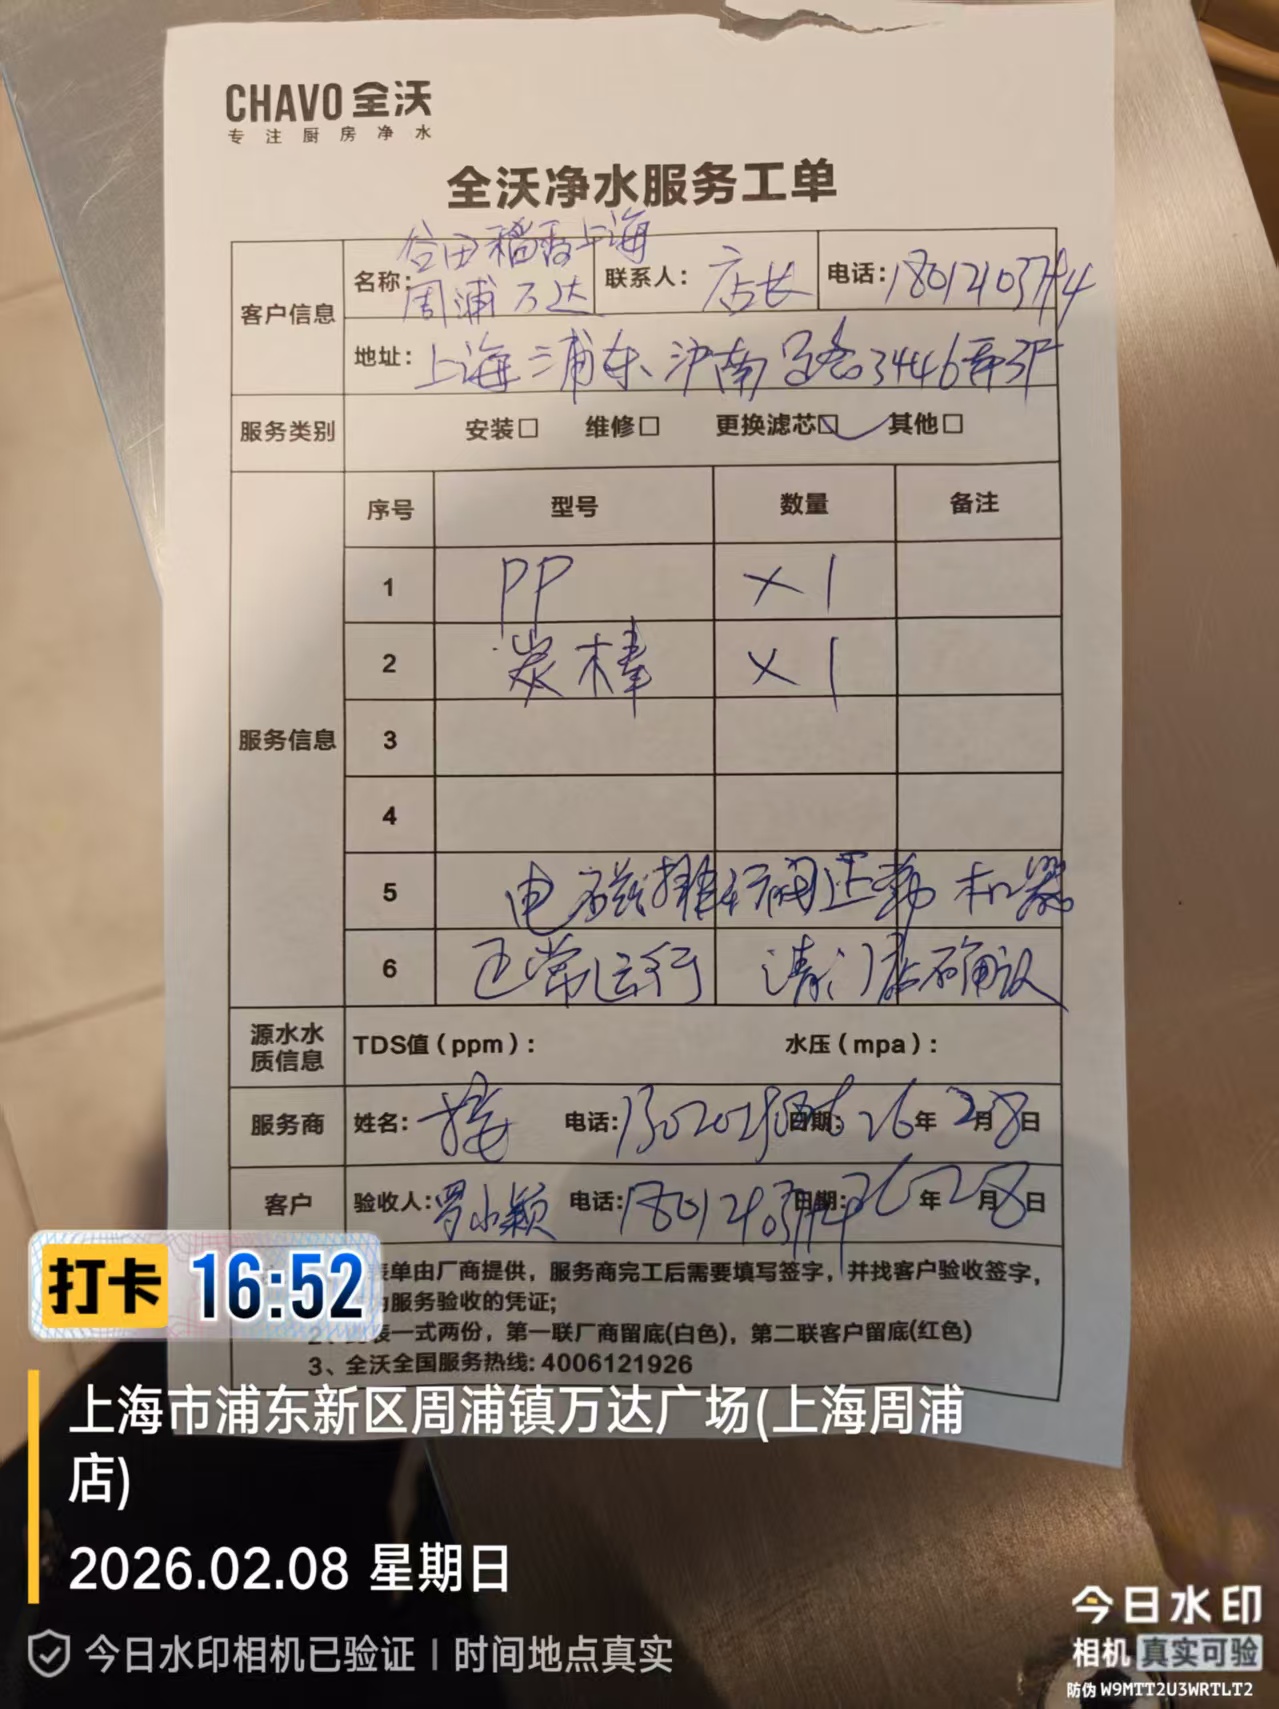 CHAVO 全沃
专注厨房净水
全沃净水服务工单
客户信息
名称: 谷田稻香上海
周浦万达
联系人: 店长
电话:
地址: 上海浦东沪南路3446弄3F
服务类别
安装□ 维修□ 更换滤芯☑ 其他□
服务信息
序号 型号 数量 备注
1 PP ×1
2 炭棒 ×1
3
4
5 电磁排阀 机器
6 正常运行 请门店确认
源水水质信息
TDS值(ppm): 水压(mpa):
服务商 姓名: 电话: 日期: 26年2月8日
客户 验收人: 罗小颖 电话: 日期: 26年2月8日
表单由厂商提供，服务商完工后需要填写签字，并找客户验收签字，
为服务验收的凭证;
表一式两份，第一联厂商留底(白色)，第二联客户留底(红色)
3、全沃全国服务热线: 4006121926
打卡 16:52
上海市浦东新区周浦镇万达广场(上海周浦
店)
2026.02.08 星期日
今日水印相机已验证 | 时间地点真实
今日水印
相机 真实可验
防伪 W9MTT2U3WRTLT2